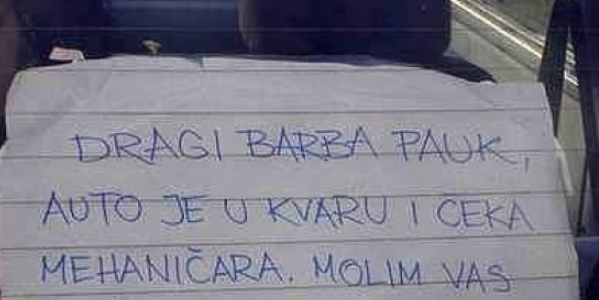 DRAGI BARBA PAUK,
AUTO JE U KVARU I ČEKA
MEHANIČARA. MOLIM VAS